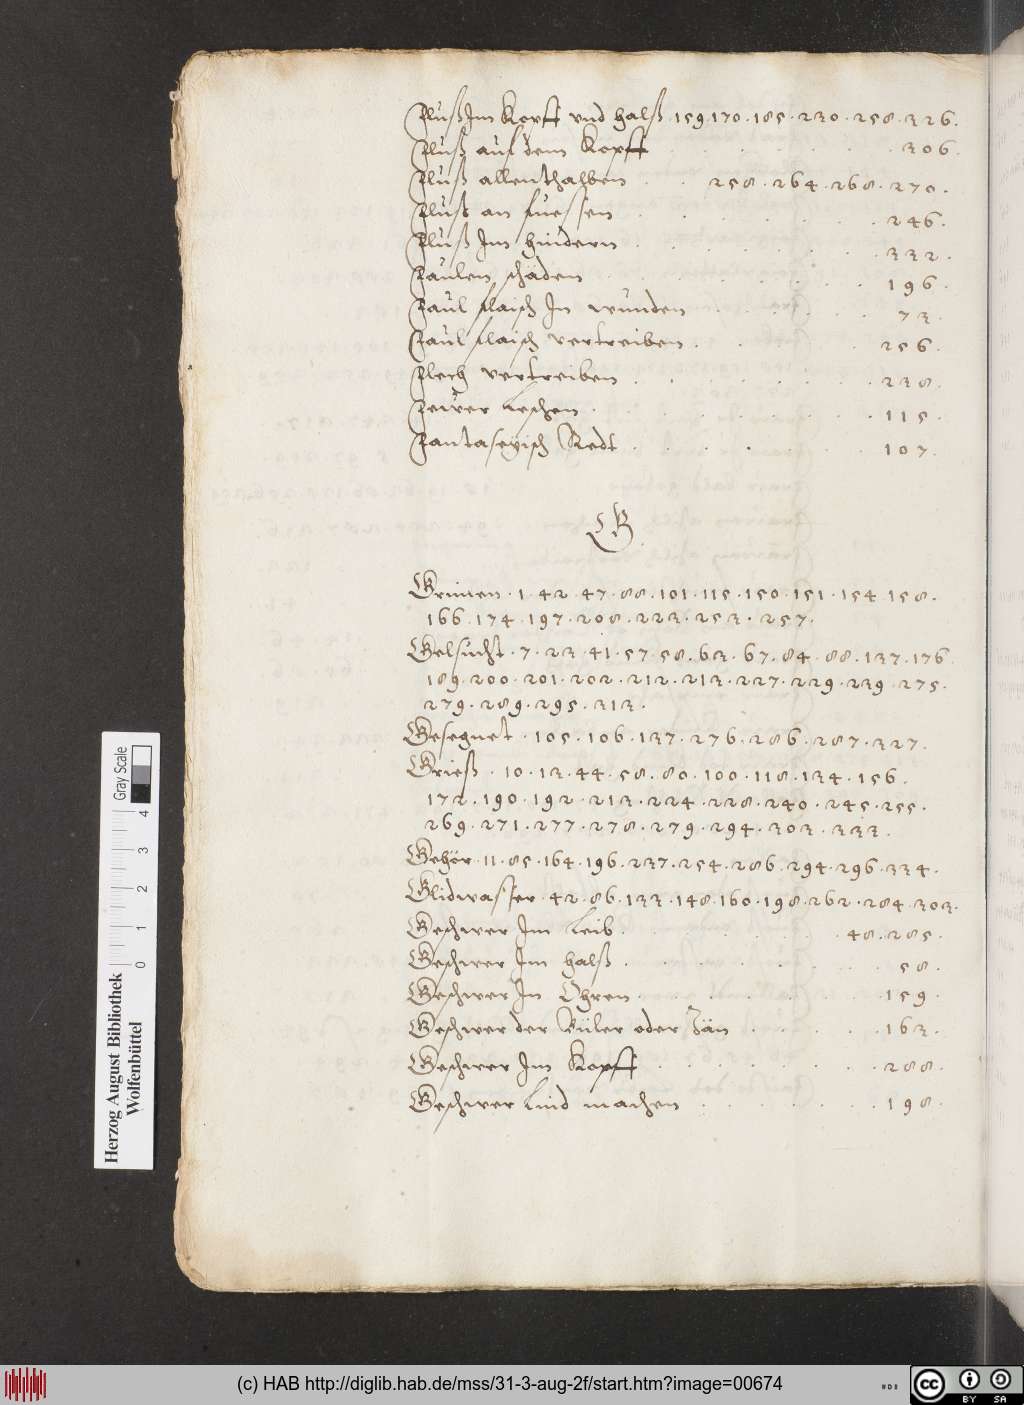 Fluß Im Kopff vnd halß 159 170 · 185 · 230 · 258 · 326 ·
Fluß auf dem Kopff · 306 ·
Fluß allenthalben · 258 · 264 · 268 · 270 ·
Fluß an fuessen · 246 ·
Fluß Im hindern · 332 ·
Faulen schäden · 196 ·
Faul flaisch In wunden · 73 ·
Faul flaisch vertreiben · 256 ·
Flech vertreiben · 238 ·
Feiver leschen · 115 ·
Fantaseyisch Redt · 107 ·
G
Grimen · 1 · 42 · 47 · 88 · 101 · 115 · 150 · 151 · 154 158 ·
166 · 174 · 197 · 208 · 223 · 253 · 257 ·
Gelsucht · 7 · 23 · 41 · 57 · 58 · 63 · 67 · 84 · 88 · 137 · 176
189 · 200 · 201 · 202 · 212 · 213 · 227 · 229 · 239 · 275 ·
279 · 289 · 295 · 313 ·
Gesegnet · 105 · 106 · 137 · 276 · 286 · 287 · 327 ·
Grieß · 10 · 13 · 44 · 58 · 80 · 100 · 118 · 134 · 156
172 · 190 · 192 · 213 · 224 · 228 · 240 · 245 · 255 ·
269 · 271 · 277 · 278 · 279 · 294 · 303 · 333 ·
Gehör · 11 · 85 · 164 · 196 · 237 · 254 · 286 · 294 · 296 · 334 ·
Glidwasser · 42 · 86 · 133 · 148 · 160 · 198 · 262 · 284 · 303 ·
Geschwer Im Leib · 48 · 285 ·
Geschwer Im halß · 58 ·
Geschwer In Ohren · 159 ·
Geschwer der Biler oder Zän · 163 ·
Geschwer Im Kopff · 288 ·
Geschwer Lind machen · 198 ·
Herzog August Bibliothek
Wolfenbüttel
0 1 2 3 4
Gray Scale
(c) HAB http://diglib.hab.de/mss/31-3-aug-2f/start.htm?image=00674
cc BY SA